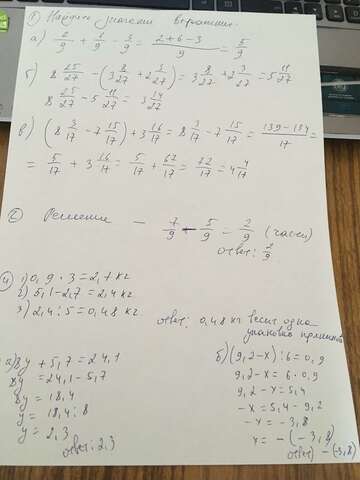 ① Найдите значения выражения.
а) 2/9 + 7/9 - 3/9 = (2+6-3)/9 = 5/9
б) 8 25/27 - (3 8/27 + 2 3/27) = 3 8/27 + 2 3/27 = 5 11/27
8 25/27 - 5 11/27 = 3 14/27
в) (8 3/17 - 7 15/17) + 3 16/17 = 8 3/17 - 7 15/17 = (139-134)/17 =
= 5/17 + 3 16/17 = 5/17 + 67/17 = 72/17 = 4 4/17
② Решение
7/9 - 5/9 = 2/9 (части)
ответ: 2/9
④ 1) 0,9 · 3 = 2,7 кг
2) 5,1 - 2,7 = 2,4 кг
3) 2,4 : 5 = 0,48 кг
ответ: 0,48 кг весит одна
упаковка
а) 8y + 5,7 = 24,1
8y = 24,1 - 5,7
8y = 18,4
y = 18,4 : 8
y = 2,3
ответ: 2,3
б) (9,2-x) : 6 = 0,9
9,2-x = 6 · 0,9
9,2-x = 5,4
-x = 5,4 - 9,2
-x = -3,8
x = -(-3,8)
ответ) -(-3,8)